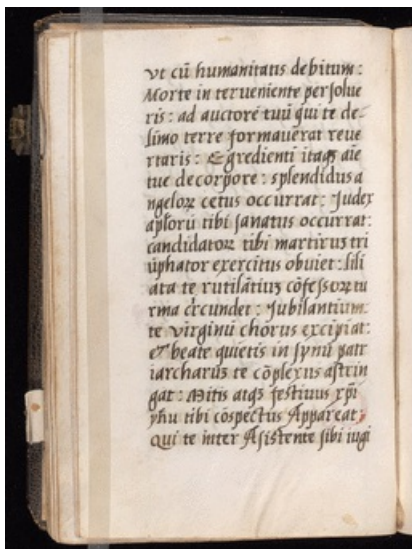 vt cū humanitatis debitum:
Morte in terueniente persolue
ris: ad auctorē tuū qui te de
limo terre formauerat reue
rtaris: Egredienti itaqꝫ aīe
tue decorpore: splendidus a
ngeloꝝ cetus occurrat: Judex
apl̄orū tibi sanatus occurrat:
candidatoꝝ tibi martirum tri
ūphator exercitus obuiet: lili
ata te rutilātiū cōfessoꝝ tu
rma circundet: Jubilantium
te virginū chorus excipiat:
et beate quietis in synū patr
iarcharum te cōplexus astrin
gat: Mitis atqꝫ festiuus xp̄i
yhu tibi cōspectus Appareat:
Qui te inter Asistente sibi iugi